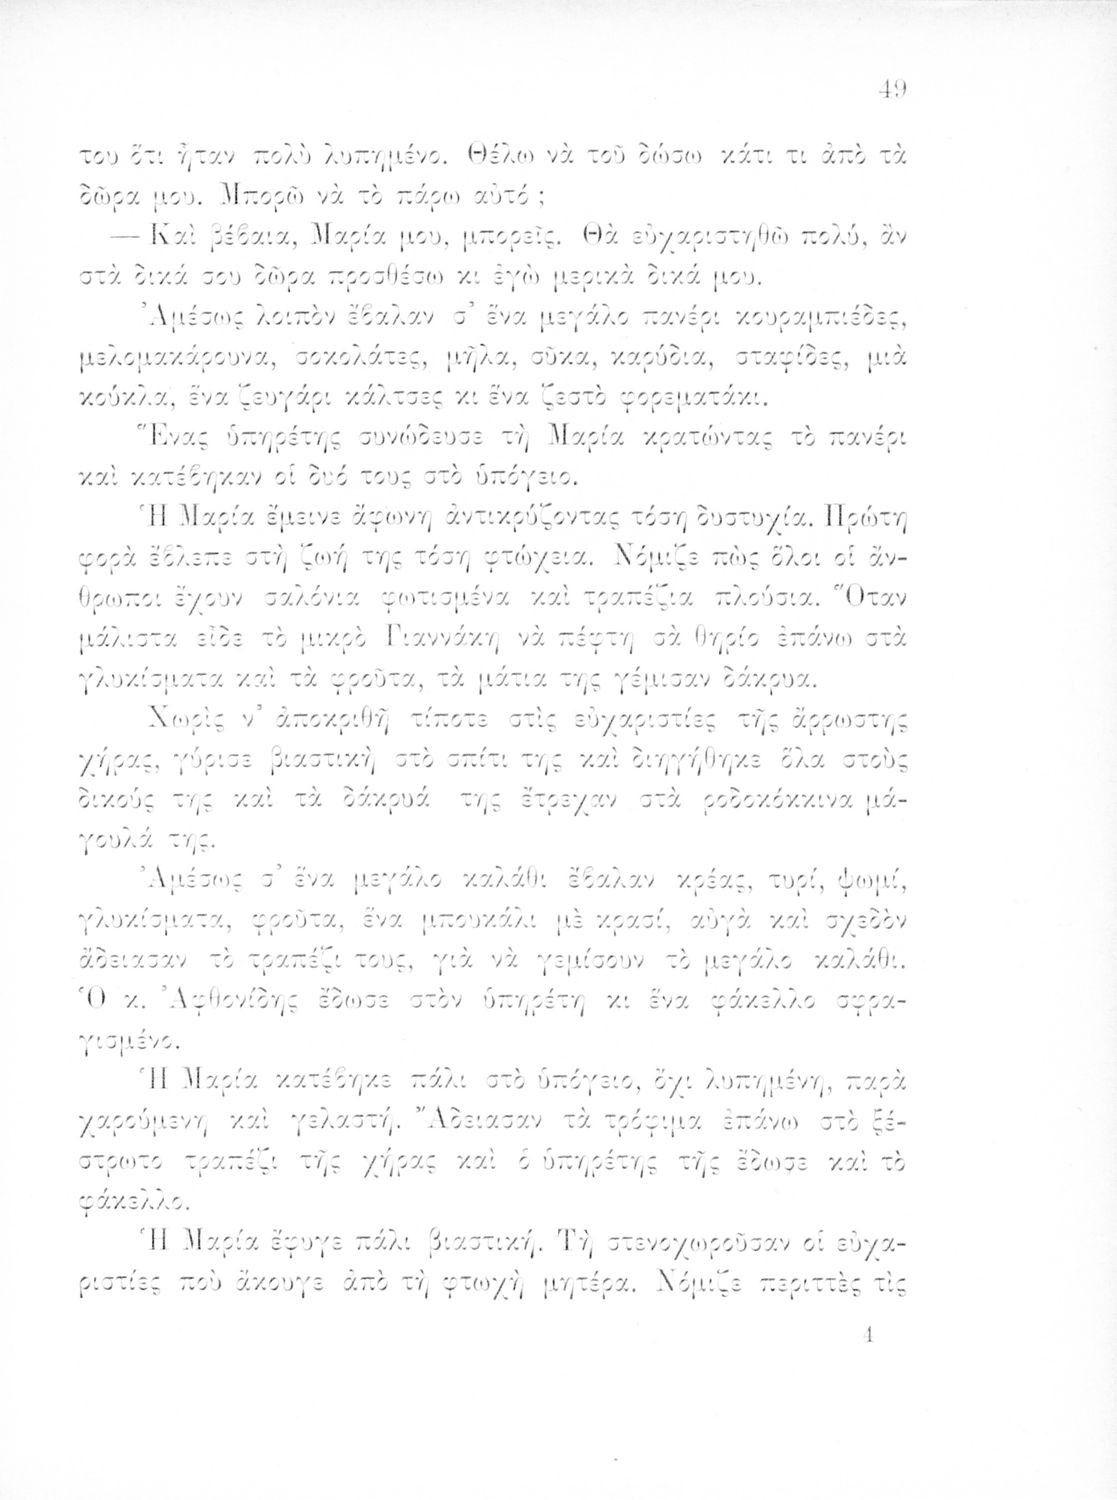 49
του ὅτι ἦταν πολὺ λυπημένο. Θέλω νὰ τοῦ δώσω κάτι τι ἀπὸ τὰ
δῶρα μου. Μπορῶ νὰ τὸ πάρω αὐτό ;
— Καὶ βέβαια, Μαρία μου, μπορεῖς. Θὰ εὐχαριστηθῶ πολύ, ἂν
στὰ δικά σου δῶρα προσθέσω κι ἐγὼ μερικὰ δικά μου.
Ἀμέσως λοιπὸν ἔβαλαν σ’ ἕνα μεγάλο πανέρι κουραμπιέδες,
μελομακάρουνα, σοκολάτες, μῆλα, σῦκα, καρύδια, σταφίδες, μιὰ
κούκλα, ἕνα ζευγάρι κάλτσες κι ἕνα ζεστὸ φορεματάκι.
Ἕνας ὑπηρέτης συνώδευσε τὴ Μαρία κρατώντας τὸ πανέρι
καὶ κατέβηκαν οἱ δυό τους στὸ ὑπόγειο.
Ἡ Μαρία ἔμεινε ἄφωνη ἀντικρύζοντας τόση δυστυχία. Πρώτη
φορὰ ἔβλεπε στὴ ζωή της τόση φτώχεια. Νόμιζε πὼς ὅλοι οἱ ἄν-
θρωποι ἔχουν σαλόνια φωτισμένα καὶ τραπέζια πλούσια. Ὅταν
μάλιστα εἶδε τὸ μικρὸ Γιαννάκη νὰ πέφτη σὰ θηρίο ἐπάνω στὰ
γλυκίσματα καὶ τὰ φροῦτα, τὰ μάτια της γέμισαν δάκρυα.
Χωρὶς ν’ ἀποκριθῆ τίποτε στὶς εὐχαριστίες τῆς ἄρρωστης
χήρας, γύρισε βιαστικὴ στὸ σπίτι της καὶ διηγήθηκε ὅλα στοὺς
δικούς της καὶ τὰ δάκρυά της ἔτρεχαν στὰ ροδοκόκκινα μά-
γουλά της.
Ἀμέσως σ’ ἕνα μεγάλο καλάθι ἔβαλαν κρέας, τυρί, ψωμί,
γλυκίσματα, φροῦτα, ἕνα μπουκάλι μὲ κρασί, αὐγὰ καὶ σχεδὸν
ἄδειασαν τὸ τραπέζι τους, γιὰ νὰ γεμίσουν τὸ μεγάλο καλάθι.
Ὁ κ. Ἀφθονίδης ἔδωσε στὸν ὑπηρέτη κι ἕνα φάκελλο σφρα-
γισμένο.
Ἡ Μαρία κατέβηκε πάλι στὸ ὑπόγειο, ὄχι λυπημένη, παρὰ
χαρούμενη καὶ γελαστή. Ἄδειασαν τὰ τρόφιμα ἐπάνω στὸ ξέ-
στρωτο τραπέζι τῆς χήρας καὶ ὁ ὑπηρέτης τῆς ἔδωσε καὶ τὸ
φάκελλο.
Ἡ Μαρία ἔφυγε πάλι βιαστική. Τὴ στενοχωροῦσαν οἱ εὐχα-
ριστίες ποὺ ἄκουγε ἀπὸ τὴ φτωχὴ μητέρα. Νόμιζε περιττὲς τὶς
4